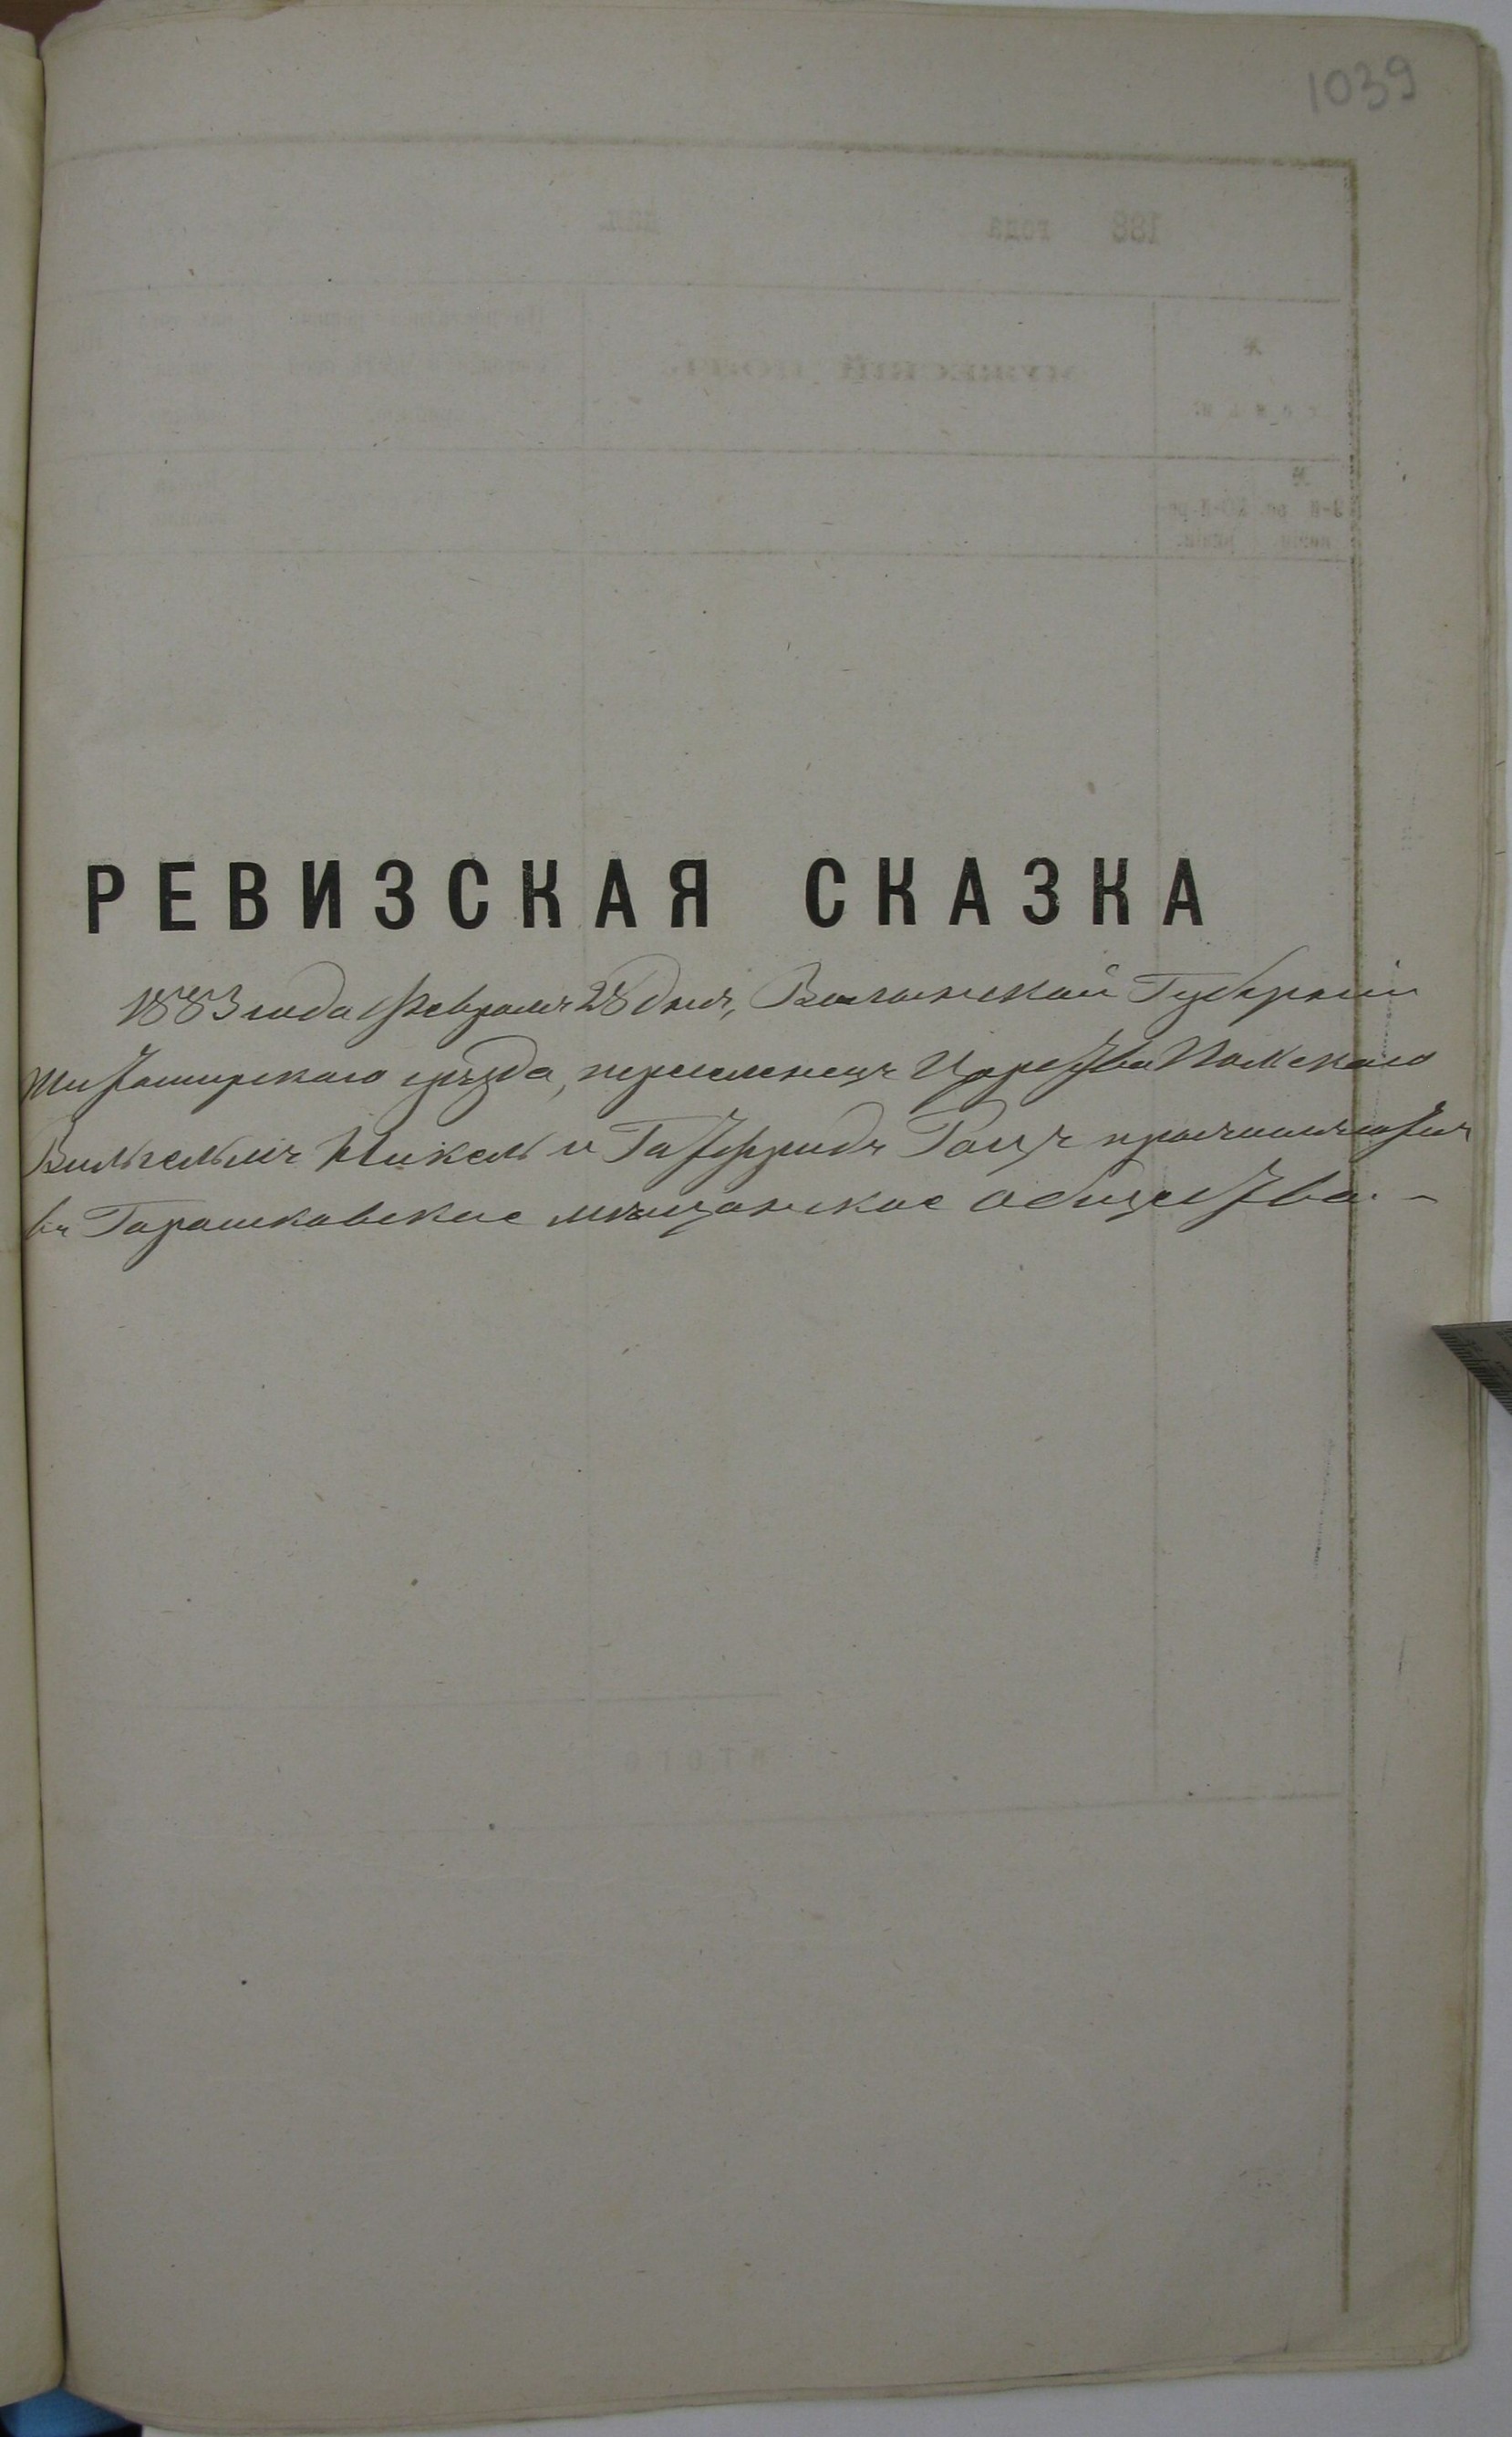 1039
РЕВИЗСКАЯ СКАЗКА
1883 года Февраля 28 дня, Волынской Губернии
Житомирскаго уѣзда, переселенец Царства Польскаго
Вильгельмъ Никель и Готфридъ Гоцъ причисляются
въ Горошковское мѣщанское общество. –